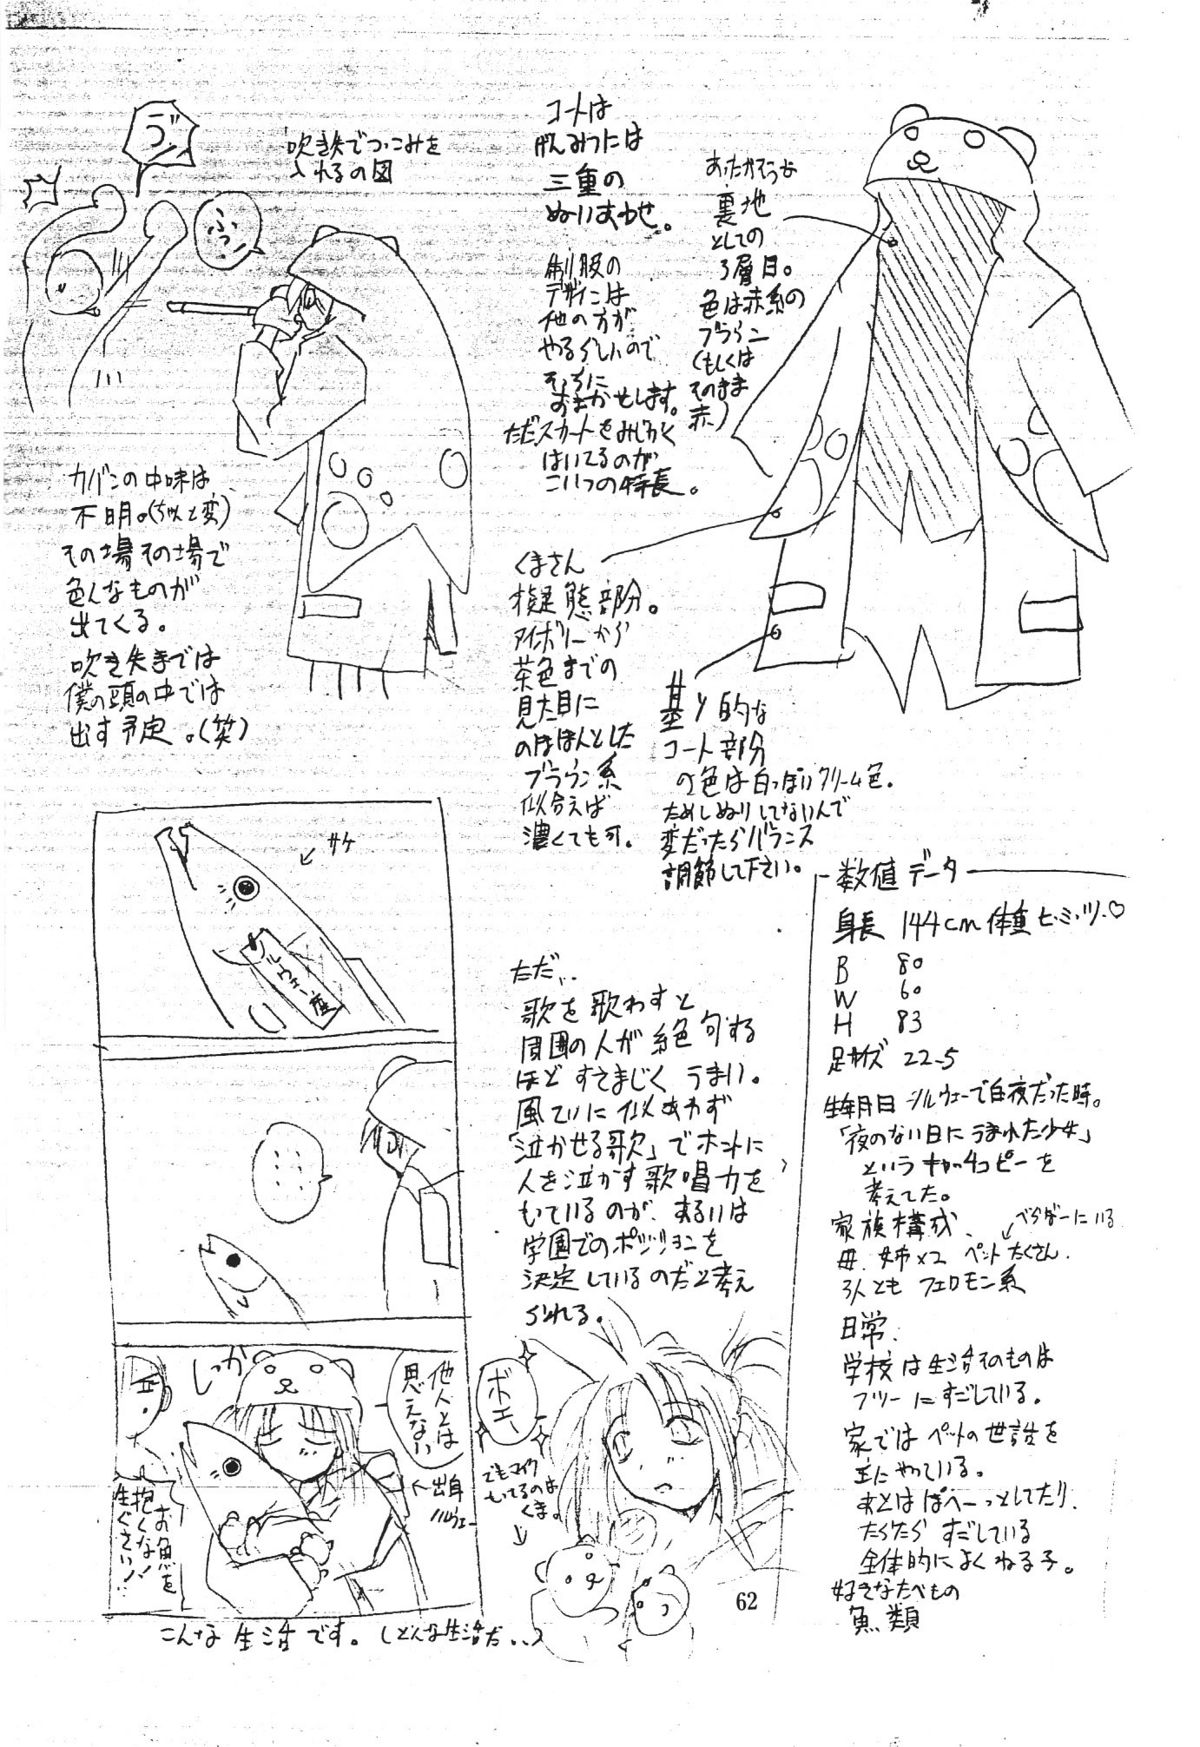 ゔっ
ふっ
吹き矢でつっこみを
入れるの図
カバンの中味は
不明。(ちょと変)
その場その場で
色んなものが
出てくる。
吹き矢までは
僕の頭の中では
出す予定。(笑)
コートは
げんみつには
三重の
ぬいあわせ。
制服の
デザインは
他の方が
やるらしいので
そちらに
おまかせします。
ただスカートをみじかく
はいてるのが
こいつの特長。
あったかそうな
裏地
としての
3層目。
色は赤系の
ブラウン
(もしくは
そのまま
赤)
くまさん
擬態部分。
アイボリーから
茶色までの
見た目に
のほほんとした
ブラウン系
似合えば
濃くても可。
基本的な
コート部分
の色は白っぽいクリーム色。
ためしぬりしてないんで
変だったらバランス
調節して下さい。
サケ
ノルウェー産
……
しっか
他人とは
思えない
出身
ノルウェー
お魚を
抱くな!
生ぐさい!
こんな生活です。(どんな生活だ..)
ただ...
歌を歌わすと
周囲の人が絶句する
ほどすさまじくうまい。
風ていに似あわず
「泣かせる歌」でホントに
人を泣かす歌唱力を
もっているのが、あるいは
学園でのポジションを
決定しているのだと考え
られる。
ボエ〜
でもマイク
もってるのは
くま。
数値データ
身長 144cm 体重 ヒ・ミ・ツ♡
B 80
W 60
H 83
足サイズ 22.5
生年月日 ノルウェーで白夜だった時。
「夜のない日にうまれた少女」
というキャッチコピーを
考えてた。
家族構成
母、姉×2 ペットたくさん.
べらんだーにいる
3人ともフェロモン系
日常.
学校は生活そのものは
フツーにすごしている。
家ではペットの世話を
主にやっている。
あとはぽへーっとしてたり.
だらだらすごしている
全体的によくねる子。
好きなたべもの
魚類
62